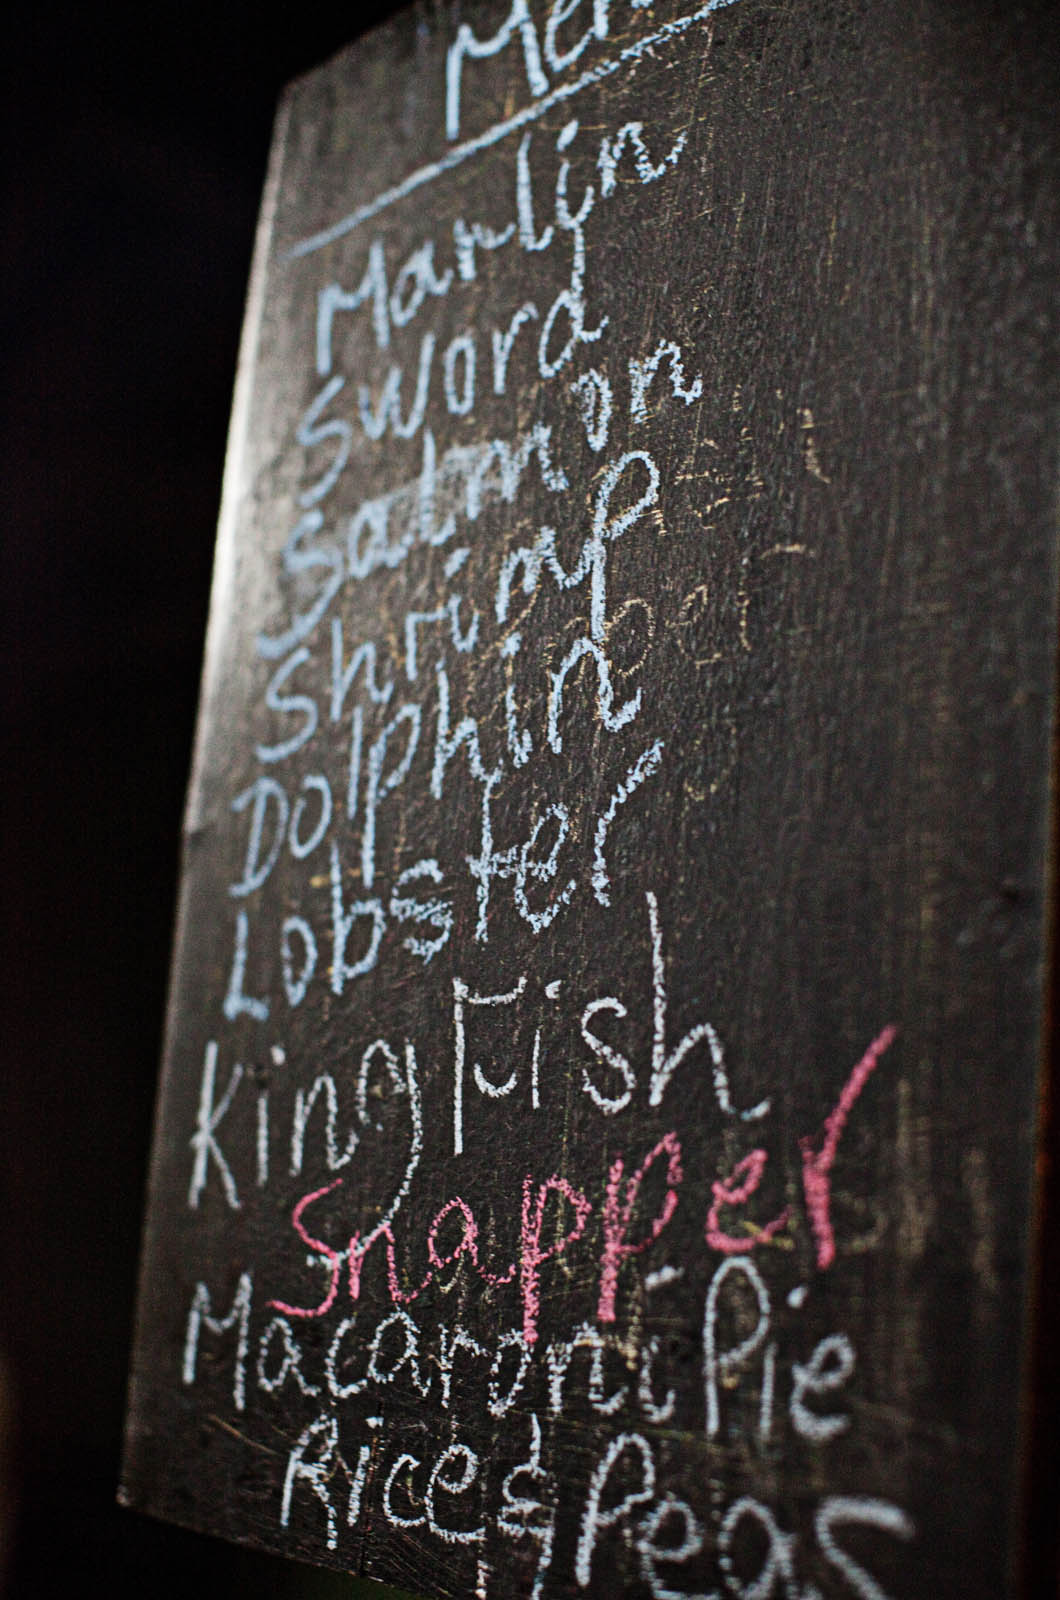 Men
Marlin
Sword
Salmon
Shrimp
Dolphin
Lobster
King Fish
Snapper
Macaroni Pie
Rice & Peas